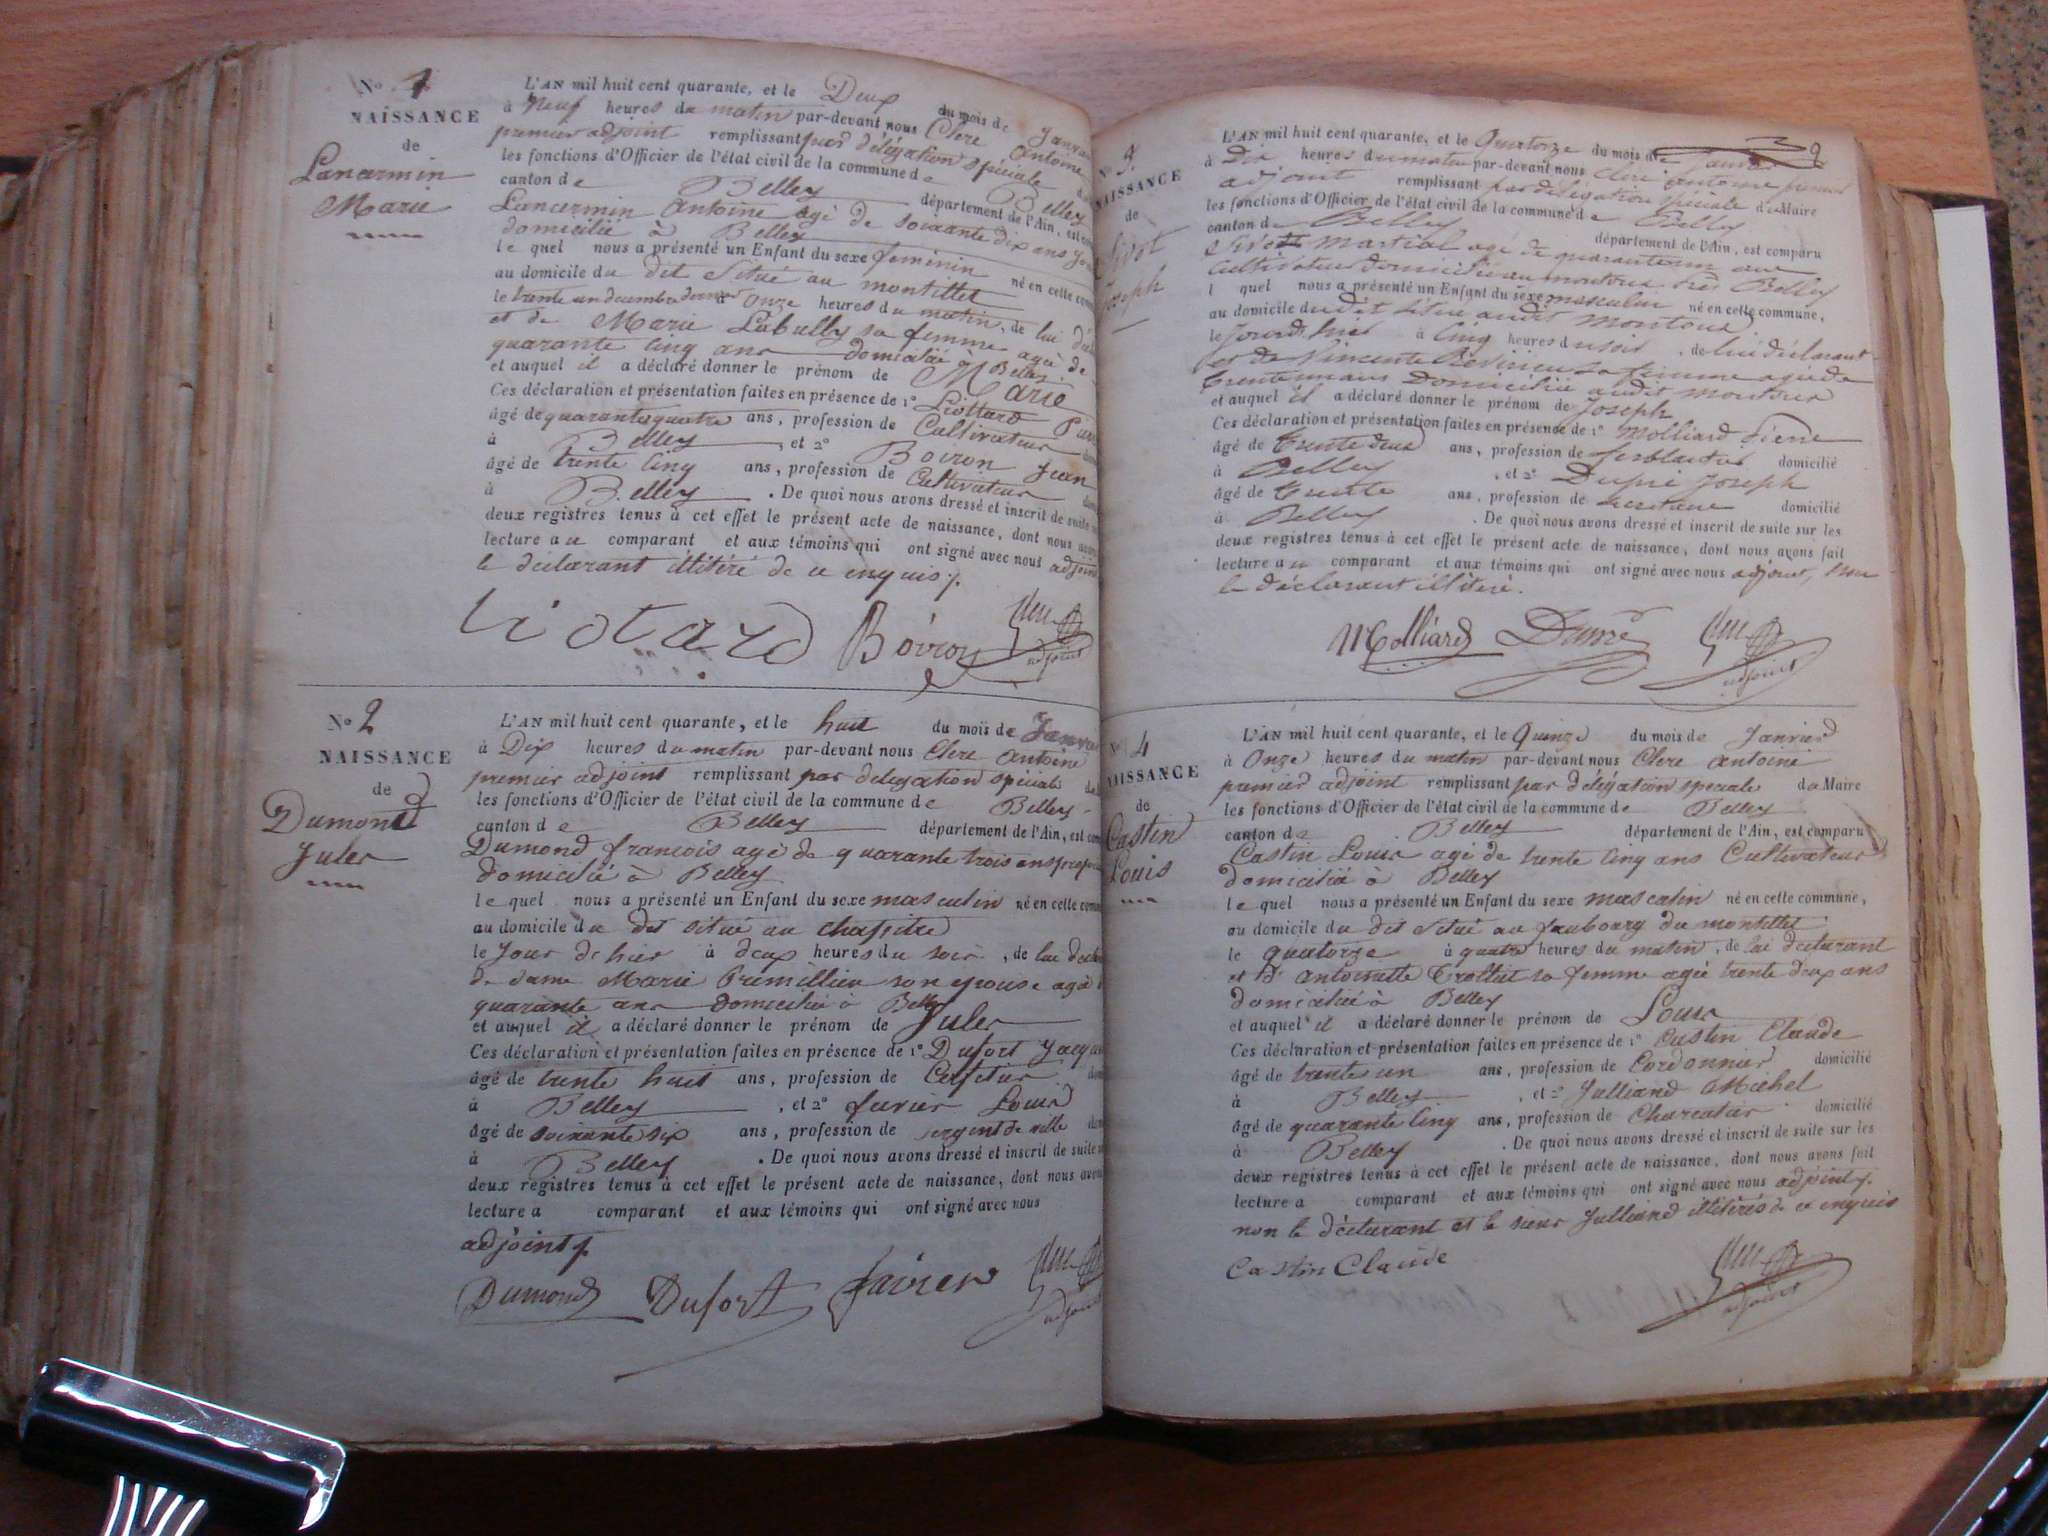 No 1
NAISSANCE
de
Lancermin
Marie
L'AN mil huit cent quarante, et le Deux du mois de Janvier
à Neuf heures du matin par-devant nous Clerc Antoine
premier adjoint remplissant par délégation spéciale
les fonctions d'Officier de l'état civil de la commune de Belley
canton de Belley département de l'Ain, est
Lancermin Antoine agé de soixante dix ans
domicilié à Belley
le quel nous a présenté un Enfant du sexe feminin né en cette
au domicile du dit situé au montillet
le trente un decembre dernier à onze heures du matin, de lui
et de Marie Labully sa femme agée de
quarante cinq ans domiciliée à Belley
et auquel il a déclaré donner le prénom de Marie
Ces déclaration et présentation faites en présence de 1° Liottard
âgé de quarante quatre ans, profession de Cultivateur
à Belley, et 2° Boiron Jean
âgé de trente cinq ans, profession de Cultivateur
à Belley. De quoi nous avons dressé et inscrit de suite
deux registres tenus à cet effet le présent acte de naissance, dont nous
lecture au comparant et aux témoins qui ont signé avec nous adjoint
le déclarant illitéré de ce enquis
Liotard Boiron
adjoint
No 2
NAISSANCE
de
Dumond
Jules
L'AN mil huit cent quarante, et le huit du mois de Janvier
à Dix heures du matin par-devant nous Clerc Antoine
premier adjoint remplissant par délégation spéciale
les fonctions d'Officier de l'état civil de la commune de Belley
canton de Belley département de l'Ain, est
Dumond francois agé de quarante trois ans
domicilié à Belley
le quel nous a présenté un Enfant du sexe masculin né en cette
au domicile du dit situé au chapitre
le Jour de hier à deux heures du soir, de lui
de dame Marie Premillieu son epouse agée
quarante ans domiciliée à Belley
et auquel il a déclaré donner le prénom de Jules
Ces déclaration et présentation faites en présence de 1° Dufort
âgé de trente huit ans, profession de
à Belley, et 2° Louis
âgé de soixante six ans, profession de sergent de ville
à Belley. De quoi nous avons dressé et inscrit de suite
deux registres tenus à cet effet le présent acte de naissance, dont nous
lecture a comparant et aux témoins qui ont signé avec nous
adjoint
Dumond Dufort
adjoint
NAISSANCE
de
Joseph
L'AN mil huit cent quarante, et le Quatorze du mois de
à Dix heures du matin par-devant nous Clerc Antoine premier
adjoint remplissant par délégation spéciale du Maire
les fonctions d'Officier de l'état civil de la commune de Belley
canton de Belley département de l'Ain, est comparu
Martial agé de quarante un ans
Cultivateur domicilié au près Belley
l quel nous a présenté un Enfant du sexe masculin né en cette commune,
au domicile du dit situé audit
le Jour d'hier à Cinq heures du soir, de lui déclarant
et de sa femme agée de
trente un ans Domiciliée audit
et auquel il a déclaré donner le prénom de Joseph
Ces déclaration et présentation faites en présence de 1° Molliard Pierre
âgé de trente deux ans, profession de ferblantier domicilié
à Belley, et 2° Joseph
âgé de trente ans, profession de domicilié
à Belley. De quoi nous avons dressé et inscrit de suite sur les
deux registres tenus à cet effet le présent acte de naissance, dont nous avons fait
lecture au comparant et aux témoins qui ont signé avec nous adjoint, non
le déclarant illitéré.
Molliard
adjoint
No 4
NAISSANCE
de
Castin
Louis
L'AN mil huit cent quarante, et le Quinze du mois de Janvier
à Onze heures du matin par-devant nous Clerc Antoine
premier adjoint remplissant par délégation speciale du Maire
les fonctions d'Officier de l'état civil de la commune de Belley
canton de Belley département de l'Ain, est comparu
Castin Louis agé de trente cinq ans Cultivateur
domicilié à Belley
le quel nous a présenté un Enfant du sexe masculin né en cette commune,
au domicile du dit situé au faubourg du montillet
le quatorze à quatre heures du matin, de lui déclarant
et d'antoinette Trollut sa femme agée trente deux ans
domiciliée à Belley
et auquel il a déclaré donner le prénom de Louis
Ces déclaration et présentation faites en présence de 1° Castin Claude
âgé de trente un ans, profession de Cordonnier domicilié
à Belley, et 2° Julliand Michel
âgé de quarante cinq ans, profession de Charcutier domicilié
à Belley. De quoi nous avons dressé et inscrit de suite sur les
deux registres tenus à cet effet le présent acte de naissance, dont nous avons fait
lecture a comparant et aux témoins qui ont signé avec nous adjoint
non le déclarant et le sieur Julliand illitérés de ce enquis
Castin Claude
adjoint